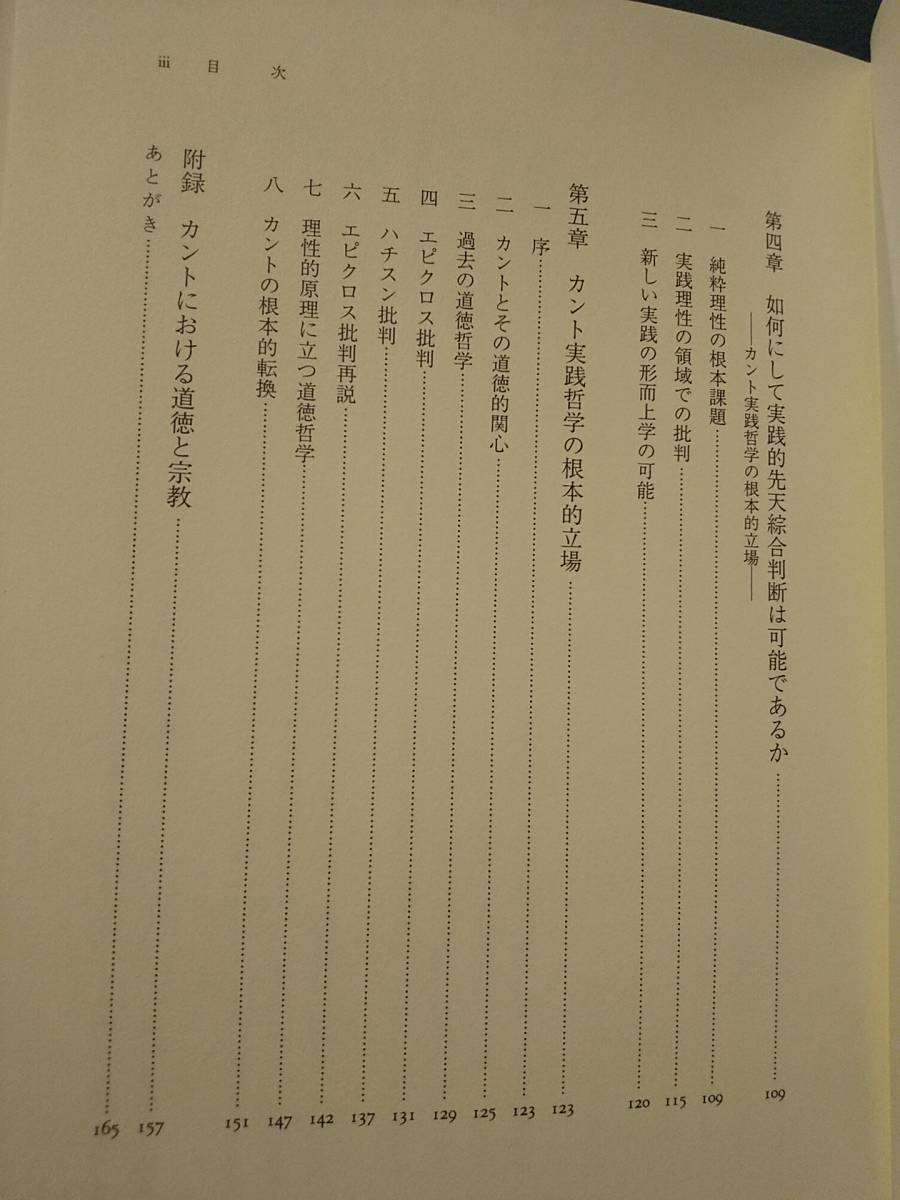 iii 目 次
第四章 如何にして実践的先天綜合判断は可能であるか……109
――カント実践哲学の根本的立場――
一 純粋理性の根本課題……109
二 実践理性の領域での批判……115
三 新しい実践の形而上学の可能……120
第五章 カント実践哲学の根本的立場……123
一 序……123
二 カントとその道徳的関心……125
三 過去の道徳哲学……129
四 エピクロス批判……131
五 ハチスン批判……137
六 エピクロス批判再説……142
七 理性的原理に立つ道徳哲学……147
八 カントの根本的転換……151
附録 カントにおける道徳と宗教……157
あとがき……165